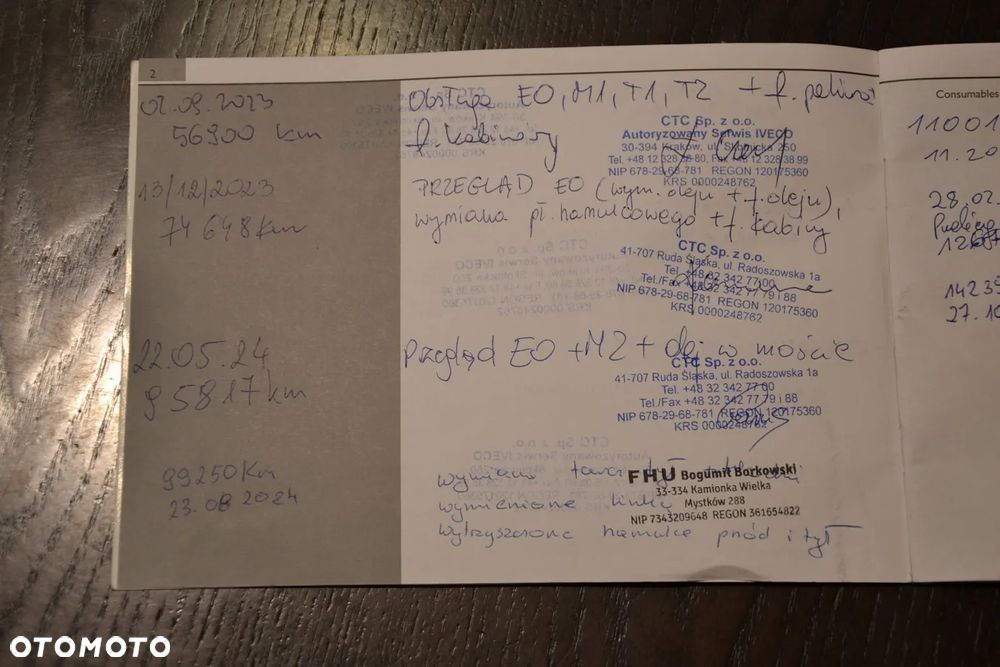 2
02.09.2023
56900 km
Obsługa EO, M1, T1, T2 + f. paliwa
f. kabinowy
CTC Sp. z o.o.
Autoryzowany Serwis IVECO
30-394 Kraków, ul. Skotnicka 250
Tel. +48 12 328 38 80, Fax +48 12 328 38 99
NIP 678-29-68-781 REGON 120175360
KRS 0000248762
13/12/2023
74 648 km
PRZEGLĄD EO (wym. oleju + f. oleju),
wymiana pł. hamulcowego + f. kabiny
CTC Sp. z o.o.
41-707 Ruda Śląska, ul. Radoszowska 1a
Tel. +48 32 342 77 00
Tel./Fax +48 32 342 77 79 i 88
NIP 678-29-68-781 REGON 120175360
KRS 0000248762
22.05.24
95817 km
Przegląd EO + M2 + olej w moście
CTC Sp. z o.o.
41-707 Ruda Śląska, ul. Radoszowska 1a
Tel. +48 32 342 77 00
Tel./Fax +48 32 342 77 79 i 88
NIP 678-29-68-781 REGON 120175360
KRS 0000248762
99250 Km
23.08.2024
wymiana tarcz tył
wymienione linki
wyczyszczone hamulce przód i tył
FHU Bogumił Borkowski
33-334 Kamionka Wielka
Mystków 288
NIP 7343209648 REGON 361654822
Consumables
11001
11.20
28.02.
1423
27.10
OTOMOTO